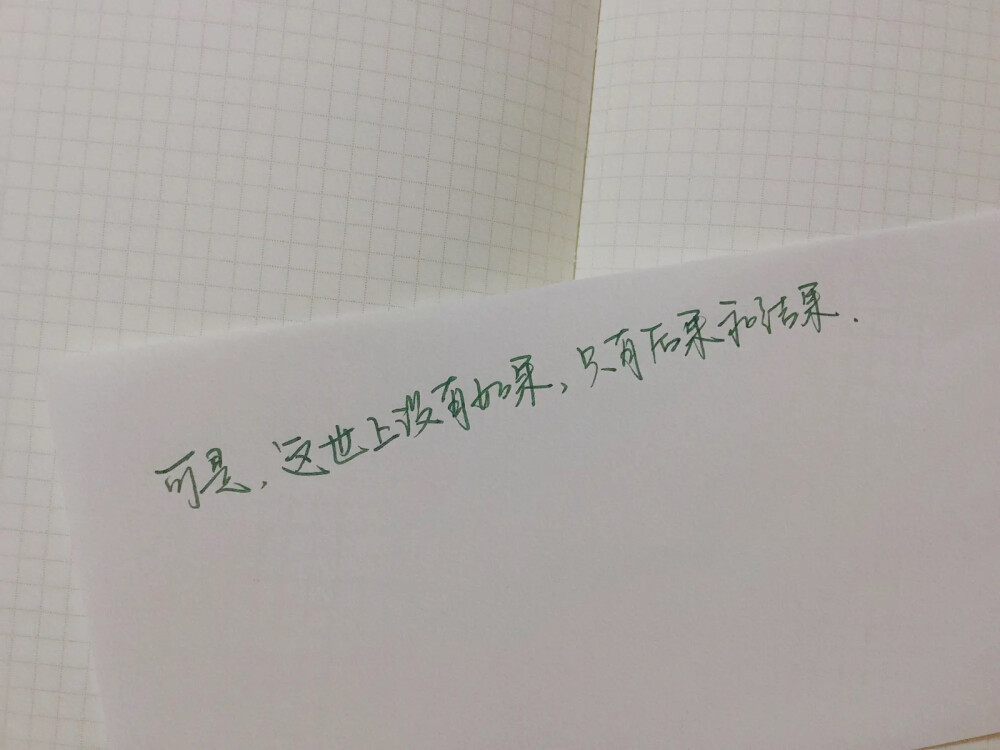 可是，这世上没有如果，只有后果和结果.